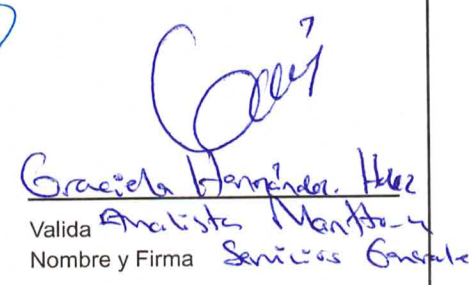 Graciela Hernández. Hdez
Valida Analista Mantto y
Nombre y Firma Servicios Generale